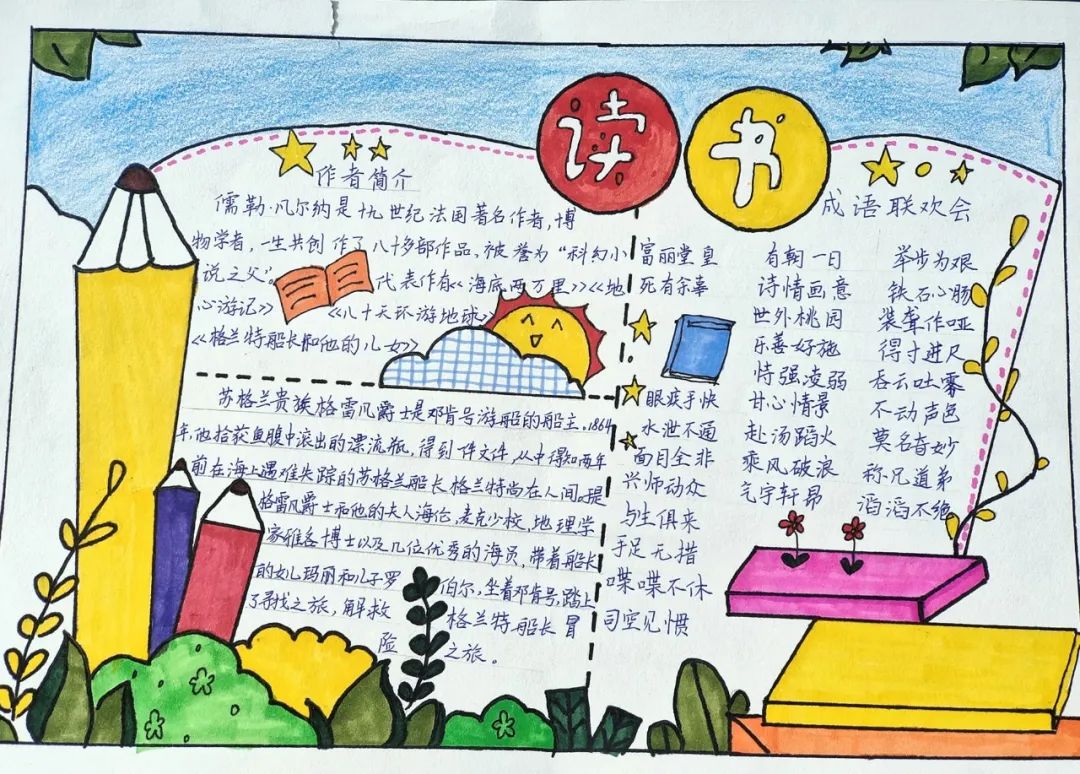 读书
作者简介
儒勒·凡尔纳是十九世纪法国著名作者,博
物学者,一生共创作了八十多部作品,被誉为“科幻小
说之父”。代表作有<<海底两万里>><<地
心游记>> <<八十天环游地球>>
<<格兰特船长和他的儿女>>
苏格兰贵族格雷凡爵士是邓肯号游船的船主。1864
年,他拾获鱼腹中滚出的漂流瓶,得到一件文件,从中得知两年
前在海上遇难失踪的苏格兰船长格兰特尚在人间。
格雷凡爵士和他的夫人海伦,麦克少校,地理学
家雅各博士以及几位优秀的海员,带着船长
的女儿玛丽和儿子罗伯尔,坐着邓肯号,踏上
了寻找之旅,解救格兰特船长冒
险之旅。
成语联欢会
富丽堂皇 有朝一日 举步为艰
死有余辜 诗情画意 铁石心肠
世外桃园 装聋作哑
乐善好施 得寸进尺
恃强凌弱 吞云吐雾
眼疾手快 甘心情景 不动声色
水泄不通 赴汤蹈火 莫名奇妙
面目全非 乘风破浪 称兄道弟
兴师动众 气宇轩昂 滔滔不绝
与生俱来
手足无措
喋喋不休
司空见惯